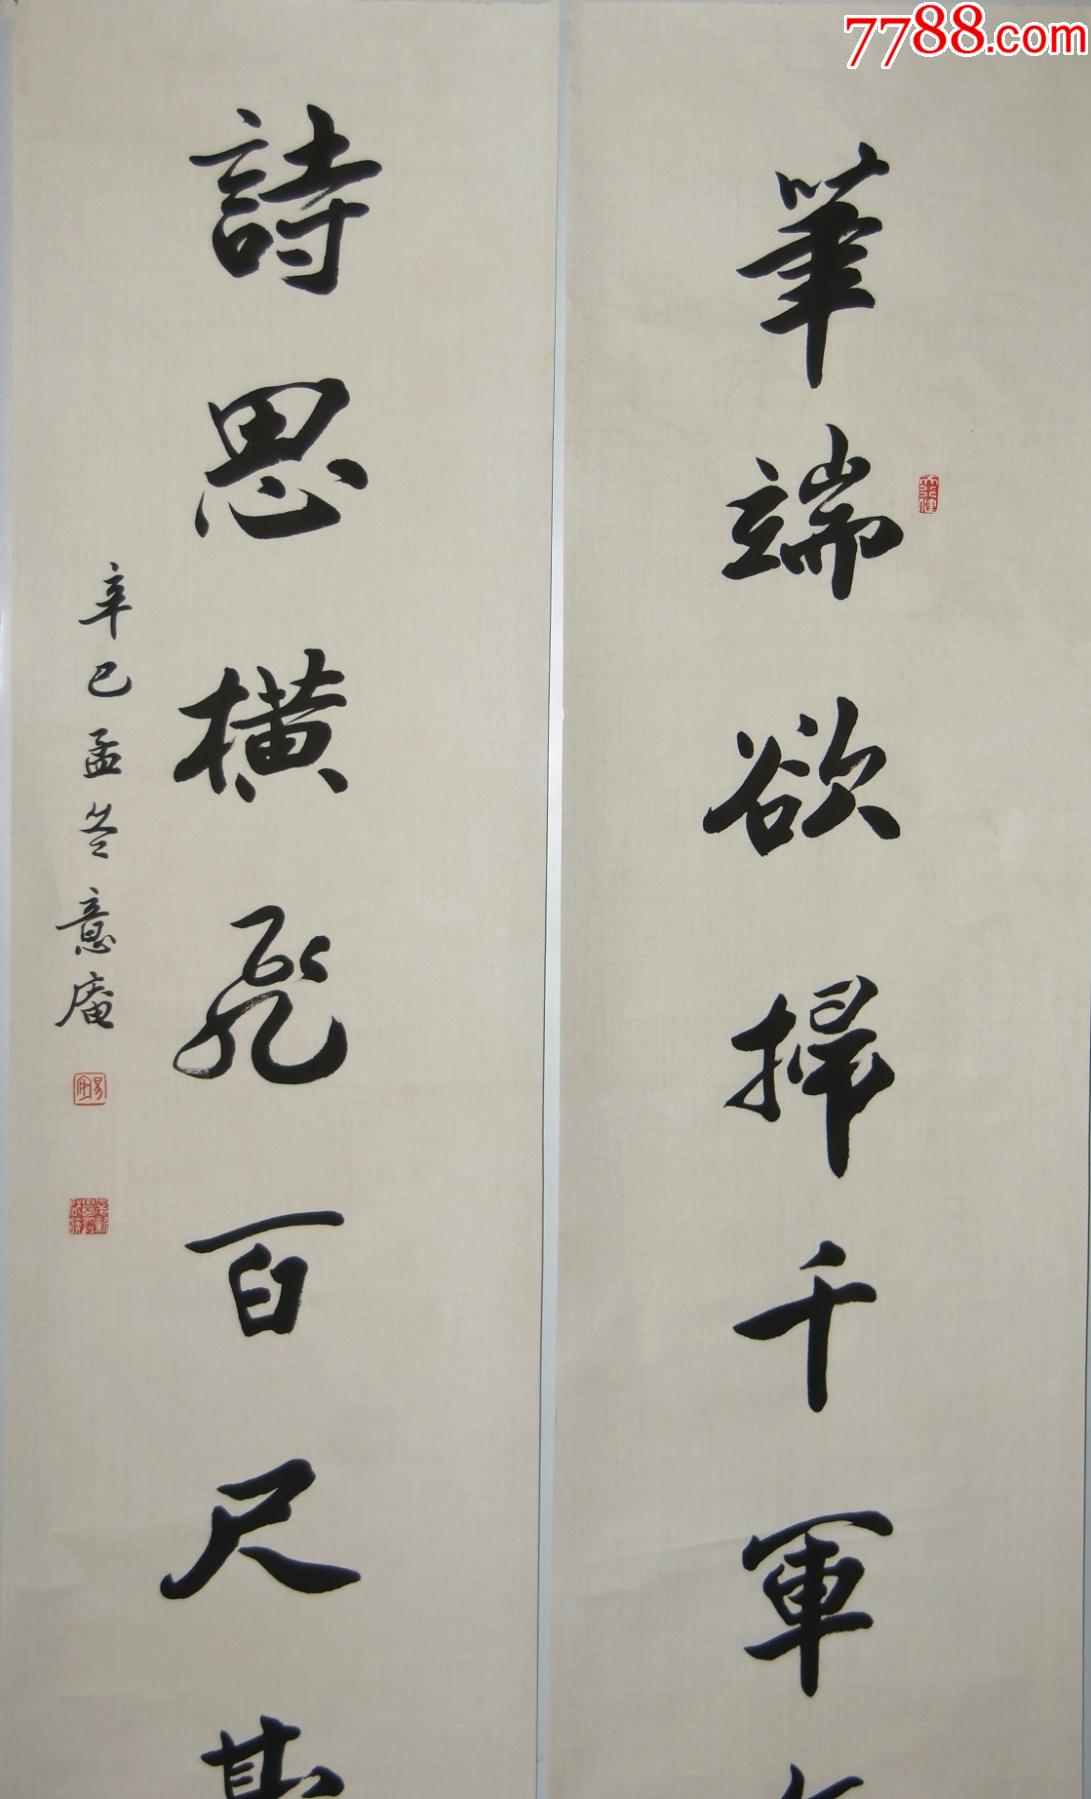 7788.com
筆端欲掃千軍
詩思橫飛百尺
辛巳孟冬意庵